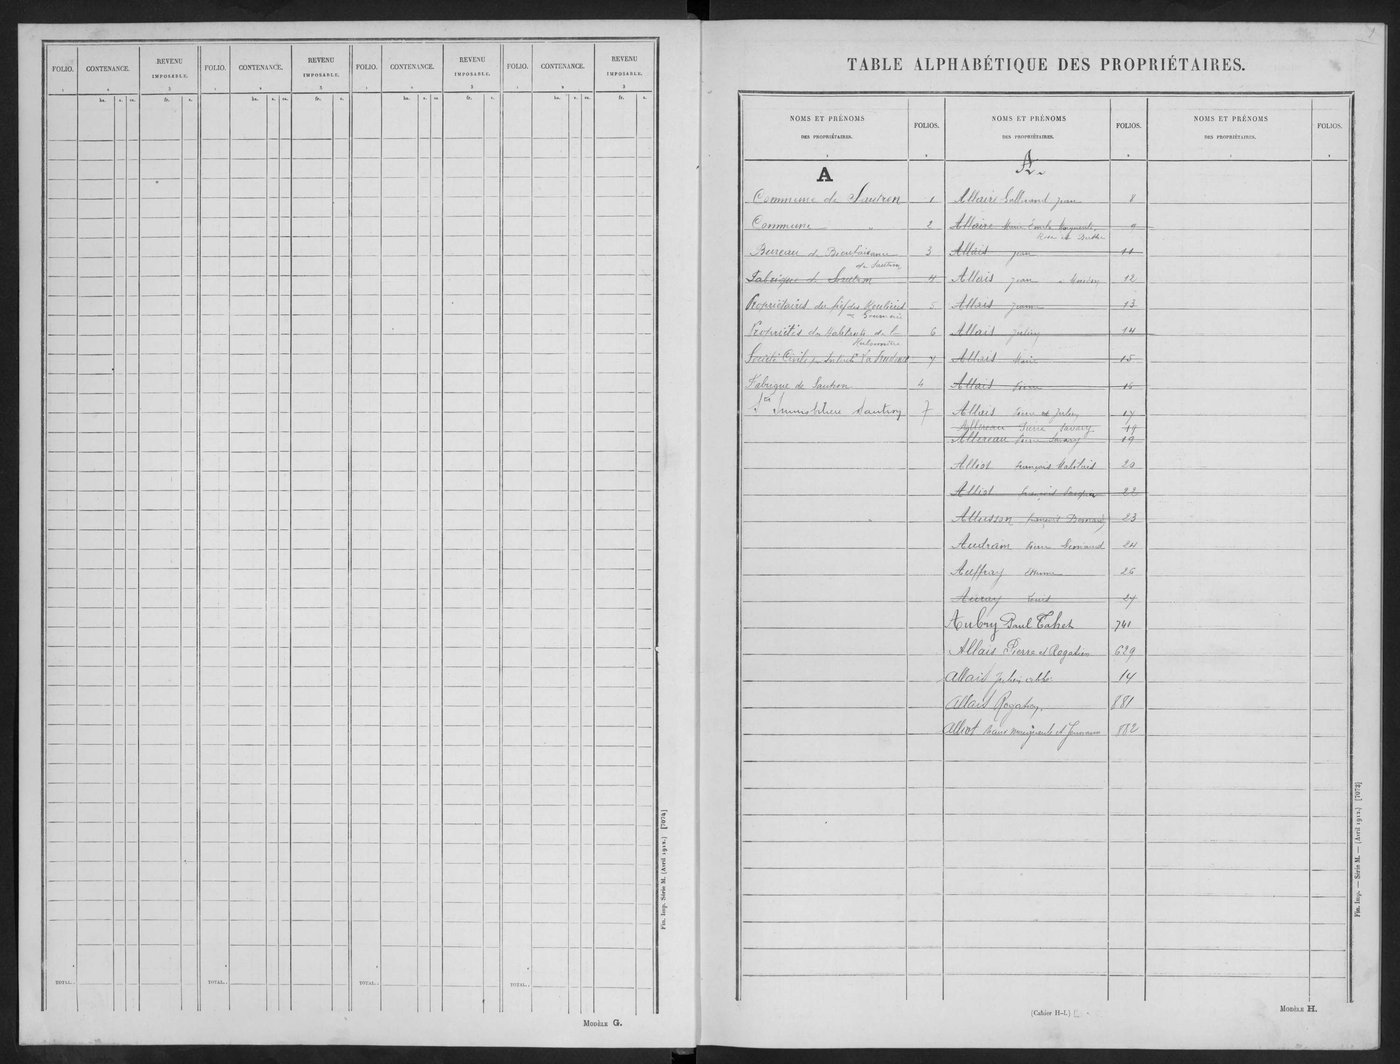 FOLIO. CONTENANCE. REVENU IMPOSABLE. FOLIO. CONTENANCE. REVENU IMPOSABLE. FOLIO. CONTENANCE. REVENU IMPOSABLE. FOLIO. CONTENANCE. REVENU IMPOSABLE.
1 2 3 1 2 3 1 2 3 1 2 3
ha. a. ca. fr. c. ha. a. ca. fr. c. ha. a. ca. fr. c. ha. a. ca. fr. c.
TOTAL. TOTAL. TOTAL. TOTAL.
MODÈLE G.
Fin. Imp. Série M. (Avril 1912.) [7074]
1
TABLE ALPHABÉTIQUE DES PROPRIÉTAIRES.
NOMS ET PRÉNOMS DES PROPRIÉTAIRES. FOLIOS. NOMS ET PRÉNOMS DES PROPRIÉTAIRES. FOLIOS. NOMS ET PRÉNOMS DES PROPRIÉTAIRES. FOLIOS.
1 2 1 2 1 2
A
Commune de Sautron 1
Commune " 2
Bureau de Bienfaisance de Sautron 3
Fabrique de Sautron 4
Propriétaires des 5
Propriétés des Habitants de la 6
Société Civile 7
Fabrique de Sautron 4
Sté Immobilière Sautron 7
A.
Allaire Jean 8
Allaire Marie Rose et 9
Allais Jean 11
Allais Jean 12
Allais Jeanne 13
Allais Julien 14
Allais Marie 15
Allais Pierre 16
Allais Pierre et Julien 17
Allereau Pierre Savary 18
Allereau Pierre Savary 19
Alliot François 20
Alliot François 22
Allusson François Bernard 23
Audrain Pierre 24
Auffray Etienne 26
Auray Louis 27
Aubry Paul 741
Allais Pierre et Rogatien 629
Allais Julien abbé 14
Allais Rogatien 881
Alliot Marie Marguerite et 882
(Cahier H-I.)
MODÈLE H.
Fin. Imp. — Série M. — (Avril 1912.) [7073]